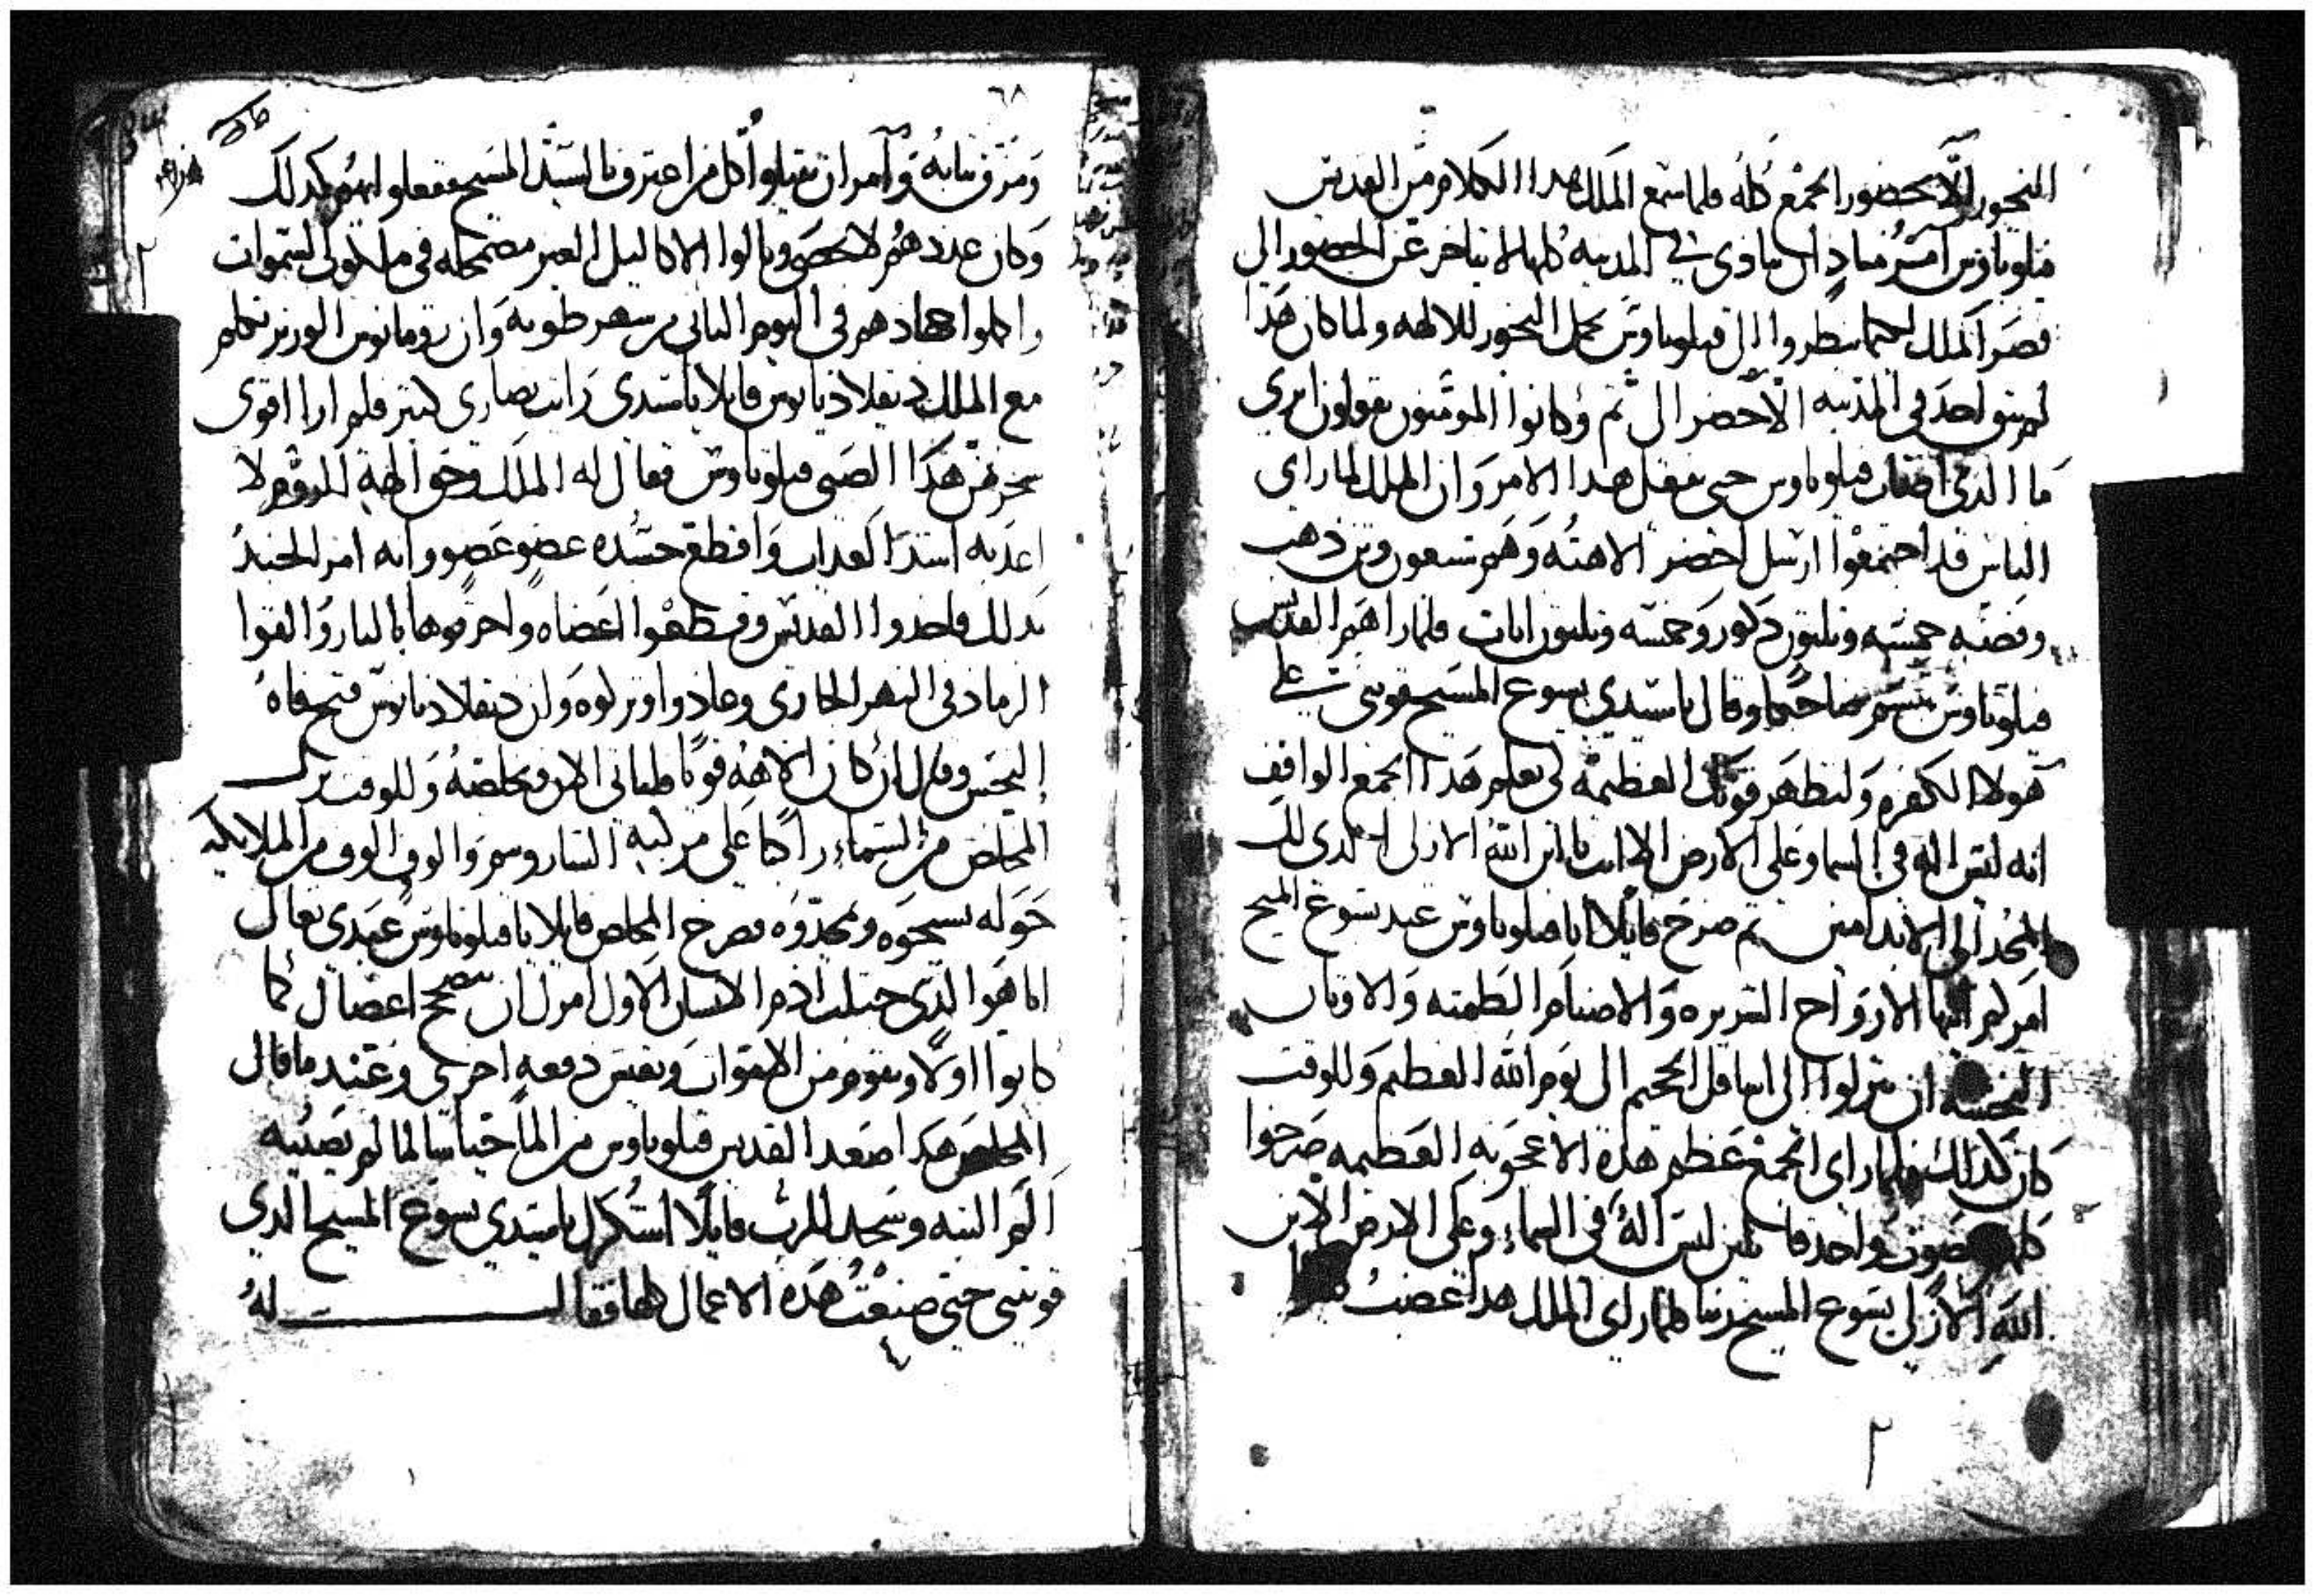 البخور الا بحضور الجمع كله فلما سمع الملك هدا الكلام من القديس
فيلوباوس امر مناد ان ينادي في المدينه كلها لا يتاخر عن الحضور الي
قصر الملك لكيما ينظروا الى فيلوباوس يحمل البخور للالهه ولما كان هدا
لم يبق احد في المدينه الا حضر الى ثم وكانوا المومنون يقولون
ما الدي فيلوباوس حتى يفعل هدا الامر وان الملك لما راي
الناس قد اجتمعوا ارسل احضر الاهته وهم سبعون وثن ذهب
وفضه خمسه وتلتون دكور وخمسه وتلتون اناث فلما راهم القديس
فيلوباوس تبسم ضاحكا وقال يا سيدي يسوع المسيح قويني على
هولا الكفره ولتظهر قوتك العظيمه لكي يعلم هدا الجمع الواقف
انه ليس اله في السما وعلى الارض الا انت يا ابن الله الازلى الدى لك
المجد الى الابد امين ثم صرخ قايلا انا فيلوباوس عبد يسوع المسيح
امركم ايها الارواح الشريره والاصنام الطمته والاوتان
النجسه ان تنزلوا الى اسافل الجحيم الى يوم الله العظيم وللوقت
كان كدالك فلما راى الجمع عظم هده الاعجوبه العظيمه صرخوا
كلهم بصوت واحد قايلين ليس اله في السماء وعلى الارض الا ابن
الله الازلي يسوع المسيح ربنا فلما راى الملك هدا غضب
٦٨
ومزق تيابه وامر ان يقتلوا كل من اعترف بالسيد المسيح ففعلوا بهم كدلك
وكان عددهم لا يحصى ونالوا الاكاليل الغير مضمحله في ملكوت السموات
واكملوا جهادهم في اليوم التاني من شهر طوبه وان رومانوس الوزير تكلم
مع الملك ديقلاديانوس قايلا يا سيدى رايت نصارى كتير فلم ارا اقوى
سحر من هدا الصبي فيلوباوس فقال له الملك وحق الهة الروم لا
اعدبه اشد العداب واقطع جسده عضو عضو وانه امر الجند
بدلك فاخدوا القديس وقطعوا اعضاه واحرقوها بالنار والقوا
الرماد في النهر الجارى وعادوا وتركوه وان ديقلاديانوس فتح فاه
النجس وقال ان كان الاهه قويا فلياتى الان ويخلصه وللوقت نزل
المخلص من السماء راكبا على مركبه الشاروبيم والوف الوف من الملايكه
حوله يسبحوه ويمجدوه فصرخ المخلص قايلا يا فيلوباوس عبدى تعال
انا هو الدى جبلت ادم الانسان الاول امرك ان تصح اعضاك كما
كانوا اولا وتقوم من الاموات وتعيش دفعه اخرى وعند ما قال
المخلص هدا صعد القديس فيلوباوس من الما حيا سالما لم يصيبه
الم البته وسجد للرب قايلا اشكرك يا سيدي يسوع المسيح الدي
قويتنى حتى صنعت هده الاعمال كلها فقال له